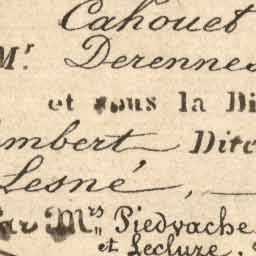 Cahouet
Mr. Derennes
et sous la Di
mbert Dire
Lesné,
Par Mrs Piedvache
et Leclure,